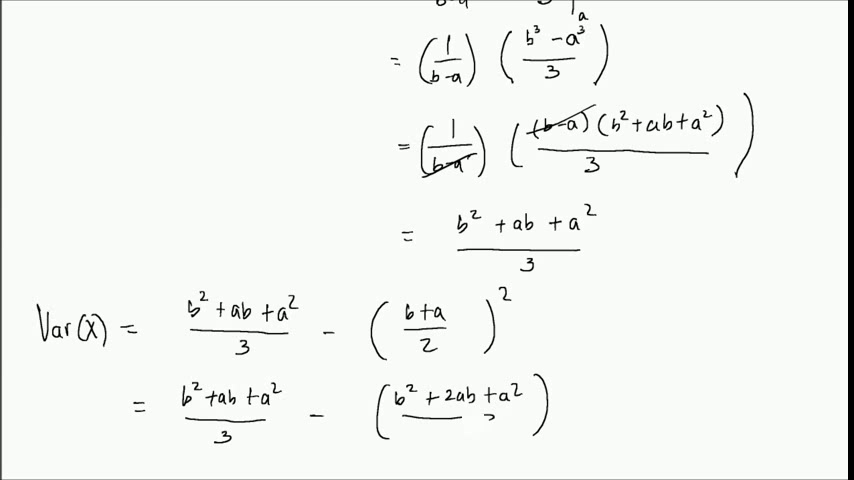 b-a 3 | a
= (1/(b-a)) ((b³ - a³)/3)
= (1/(b-a)) ((b-a)(b² + ab + a²)/3)
= (b² + ab + a²)/3
Var(X) = (b² + ab + a²)/3 - ((b+a)/2)²
= (b² + ab + a²)/3 - (b² + 2ab + a²)